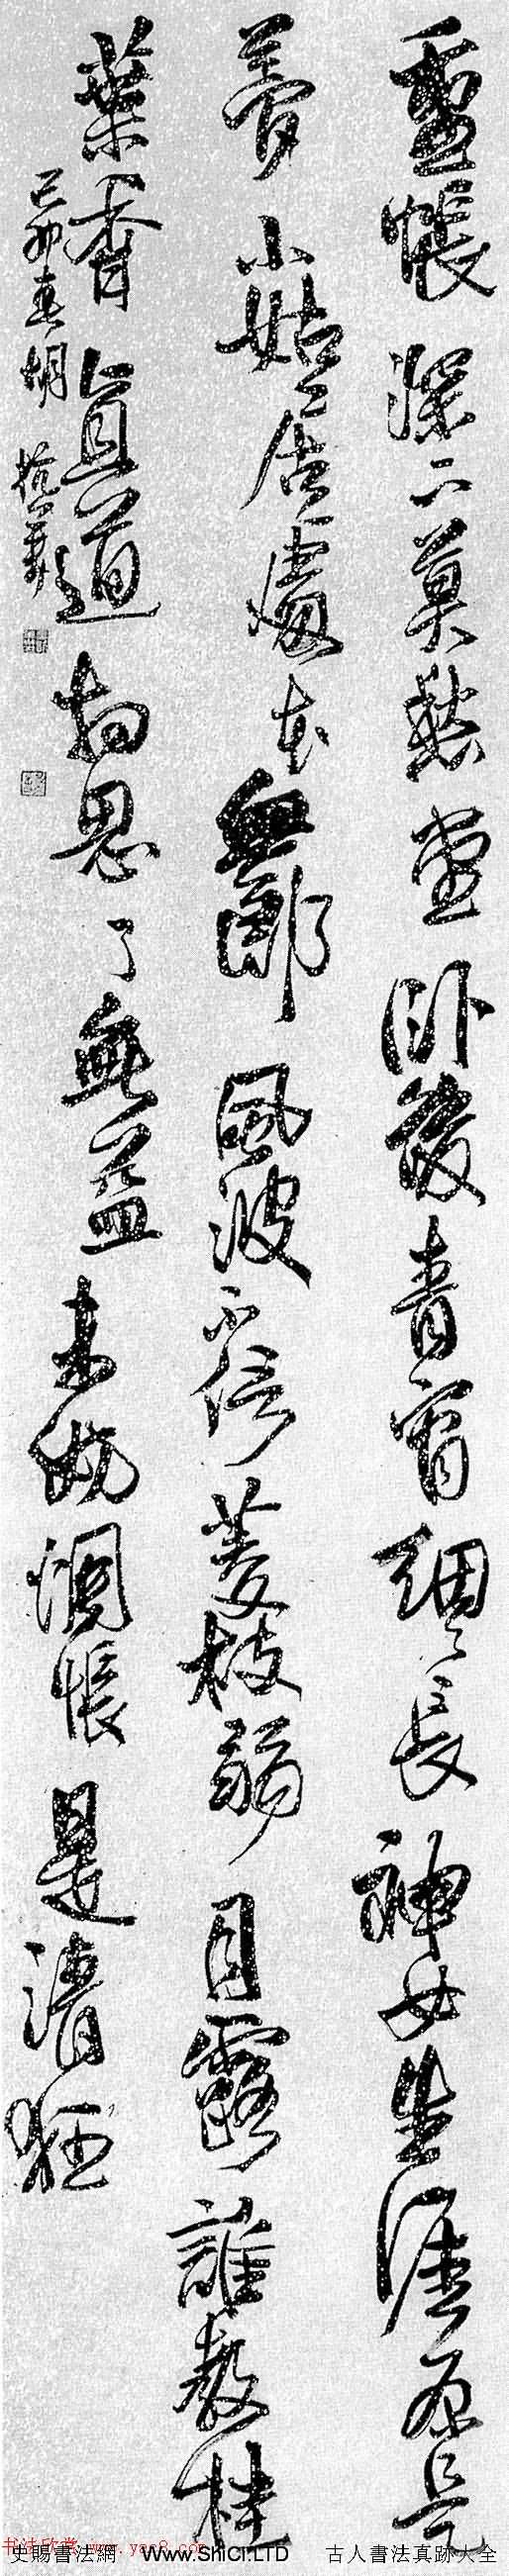 重帳深下莫愁堂臥後青宵細々長神女生涯原是
夢小姑居處本無郎風波不信菱枝弱月露誰教桂
葉香直道相思了無益未妨惆悵是清狂
己卯春胡抗美
书法欣赏 www.yac8.com
史賜書法網 www.ShiCi.LTD 古人書法真跡大全